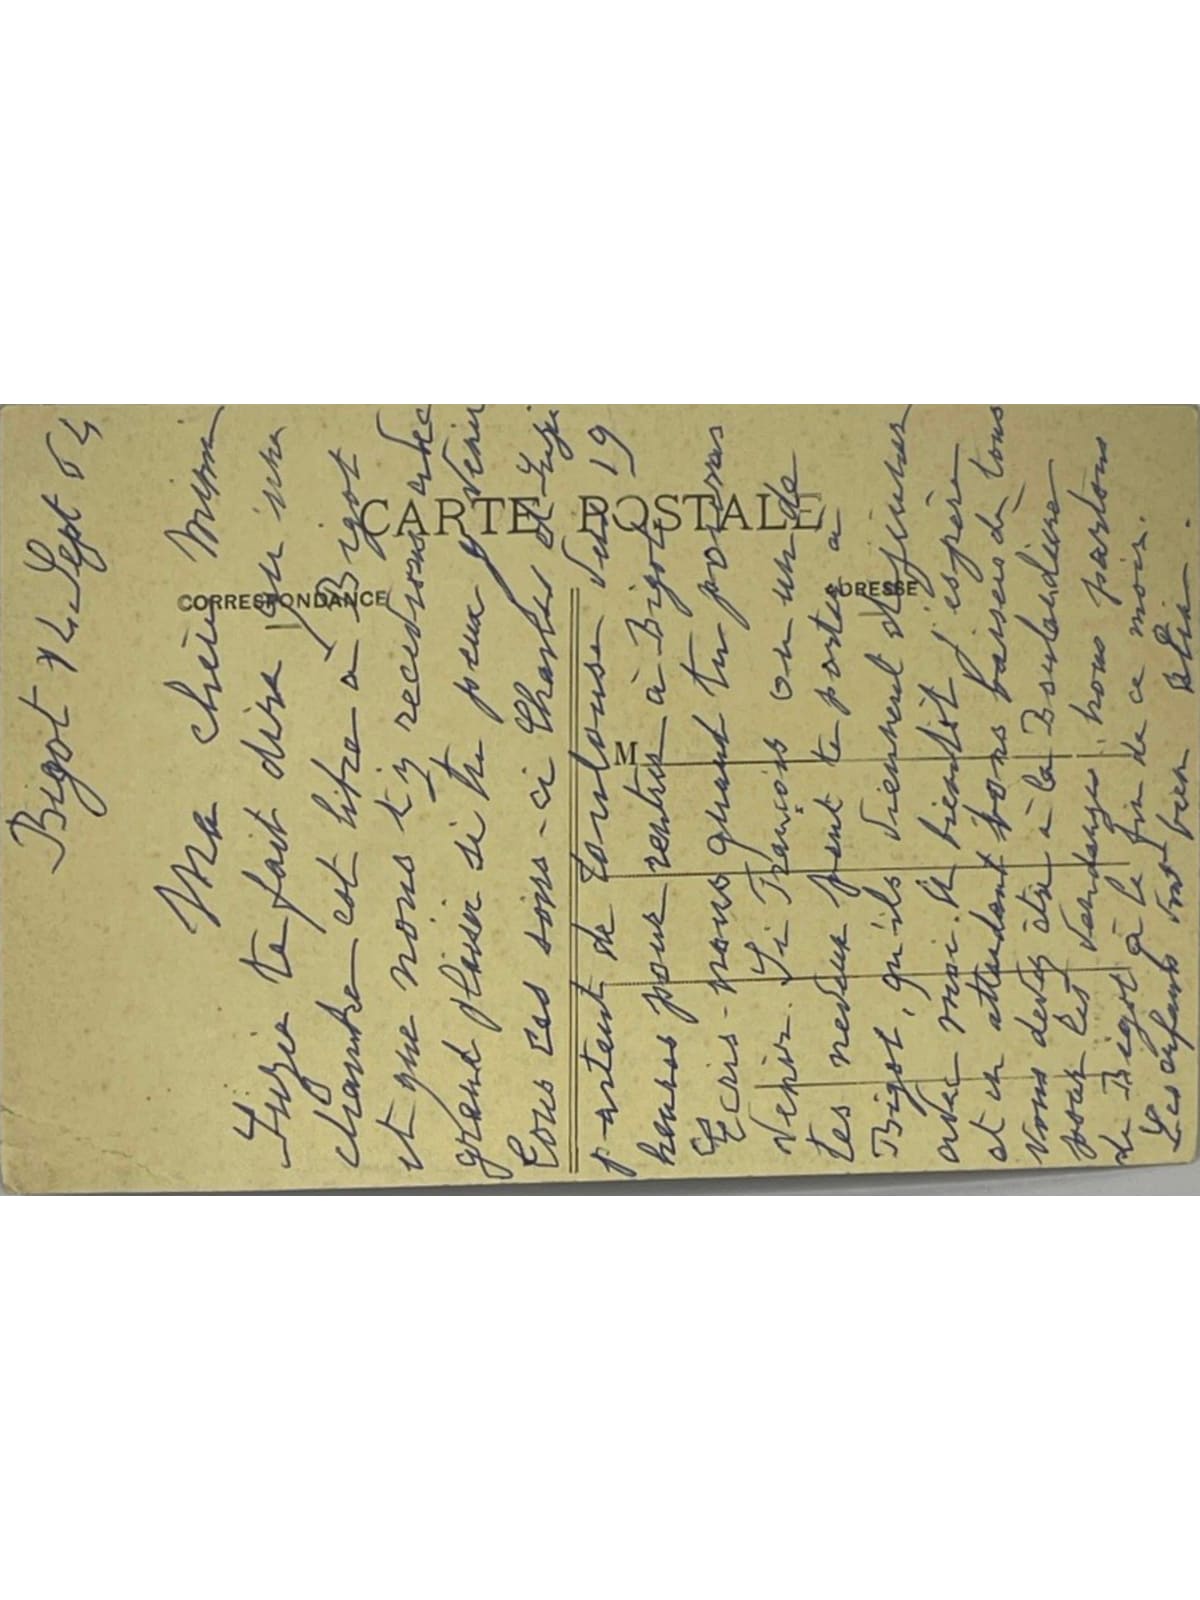 CARTE POSTALE
CORRESPONDANCE
ADRESSE
M
Bigot Sept
Ma chère Mimi
te fait dire qu'une
chambre est libre à Bigot
et que nous t'y recevrons avec
grand plaisir si tu peux y venir
Tous ces jours-ci Charles et
partent de Toulouse vers 19
heures pour rentrer à Bigot.
Ecris-nous quand tu pourras
venir. Si François ou un de
tes neveux peut te porter à
Bigot, qu'ils viennent déjeuner
avec moi. A bientôt j'espère
et en attendant bons baisers de tous
Vous devez être à la
pour les vendanges nous partons
de Bigot à la fin de ce mois.
Les enfants vont bien